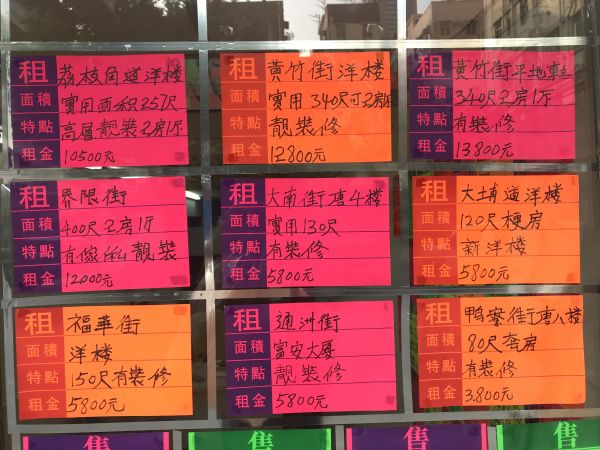 租 荔枝角道洋楼
面積 實用面积257尺
特點 高層靚裝2房1厅
租金 10500元
租 黃竹街洋楼
面積 實用340尺可2房
特點 靚裝修
租金 12800元
租 黃竹街平地
面積 340尺2房1厅
特點 有裝修
租金 13800元
租 界限街
面積 400尺2房1厅
特點 有傢俬靚裝
租金 12000元
租 大南街唐4楼
面積 實用130尺
特點 有裝修
租金 5800元
租 大埔道洋楼
面積 120尺梗房
特點 新洋楼
租金 5800元
租 福華街
面積 洋楼
特點 150尺有裝修
租金 5800元
租 通洲街
面積 富安大厦
特點 靚裝修
租金 5800元
租 鸭寮街唐八楼
面積 80尺套房
特點 有裝修
租金 3.800元
售 售 售 售